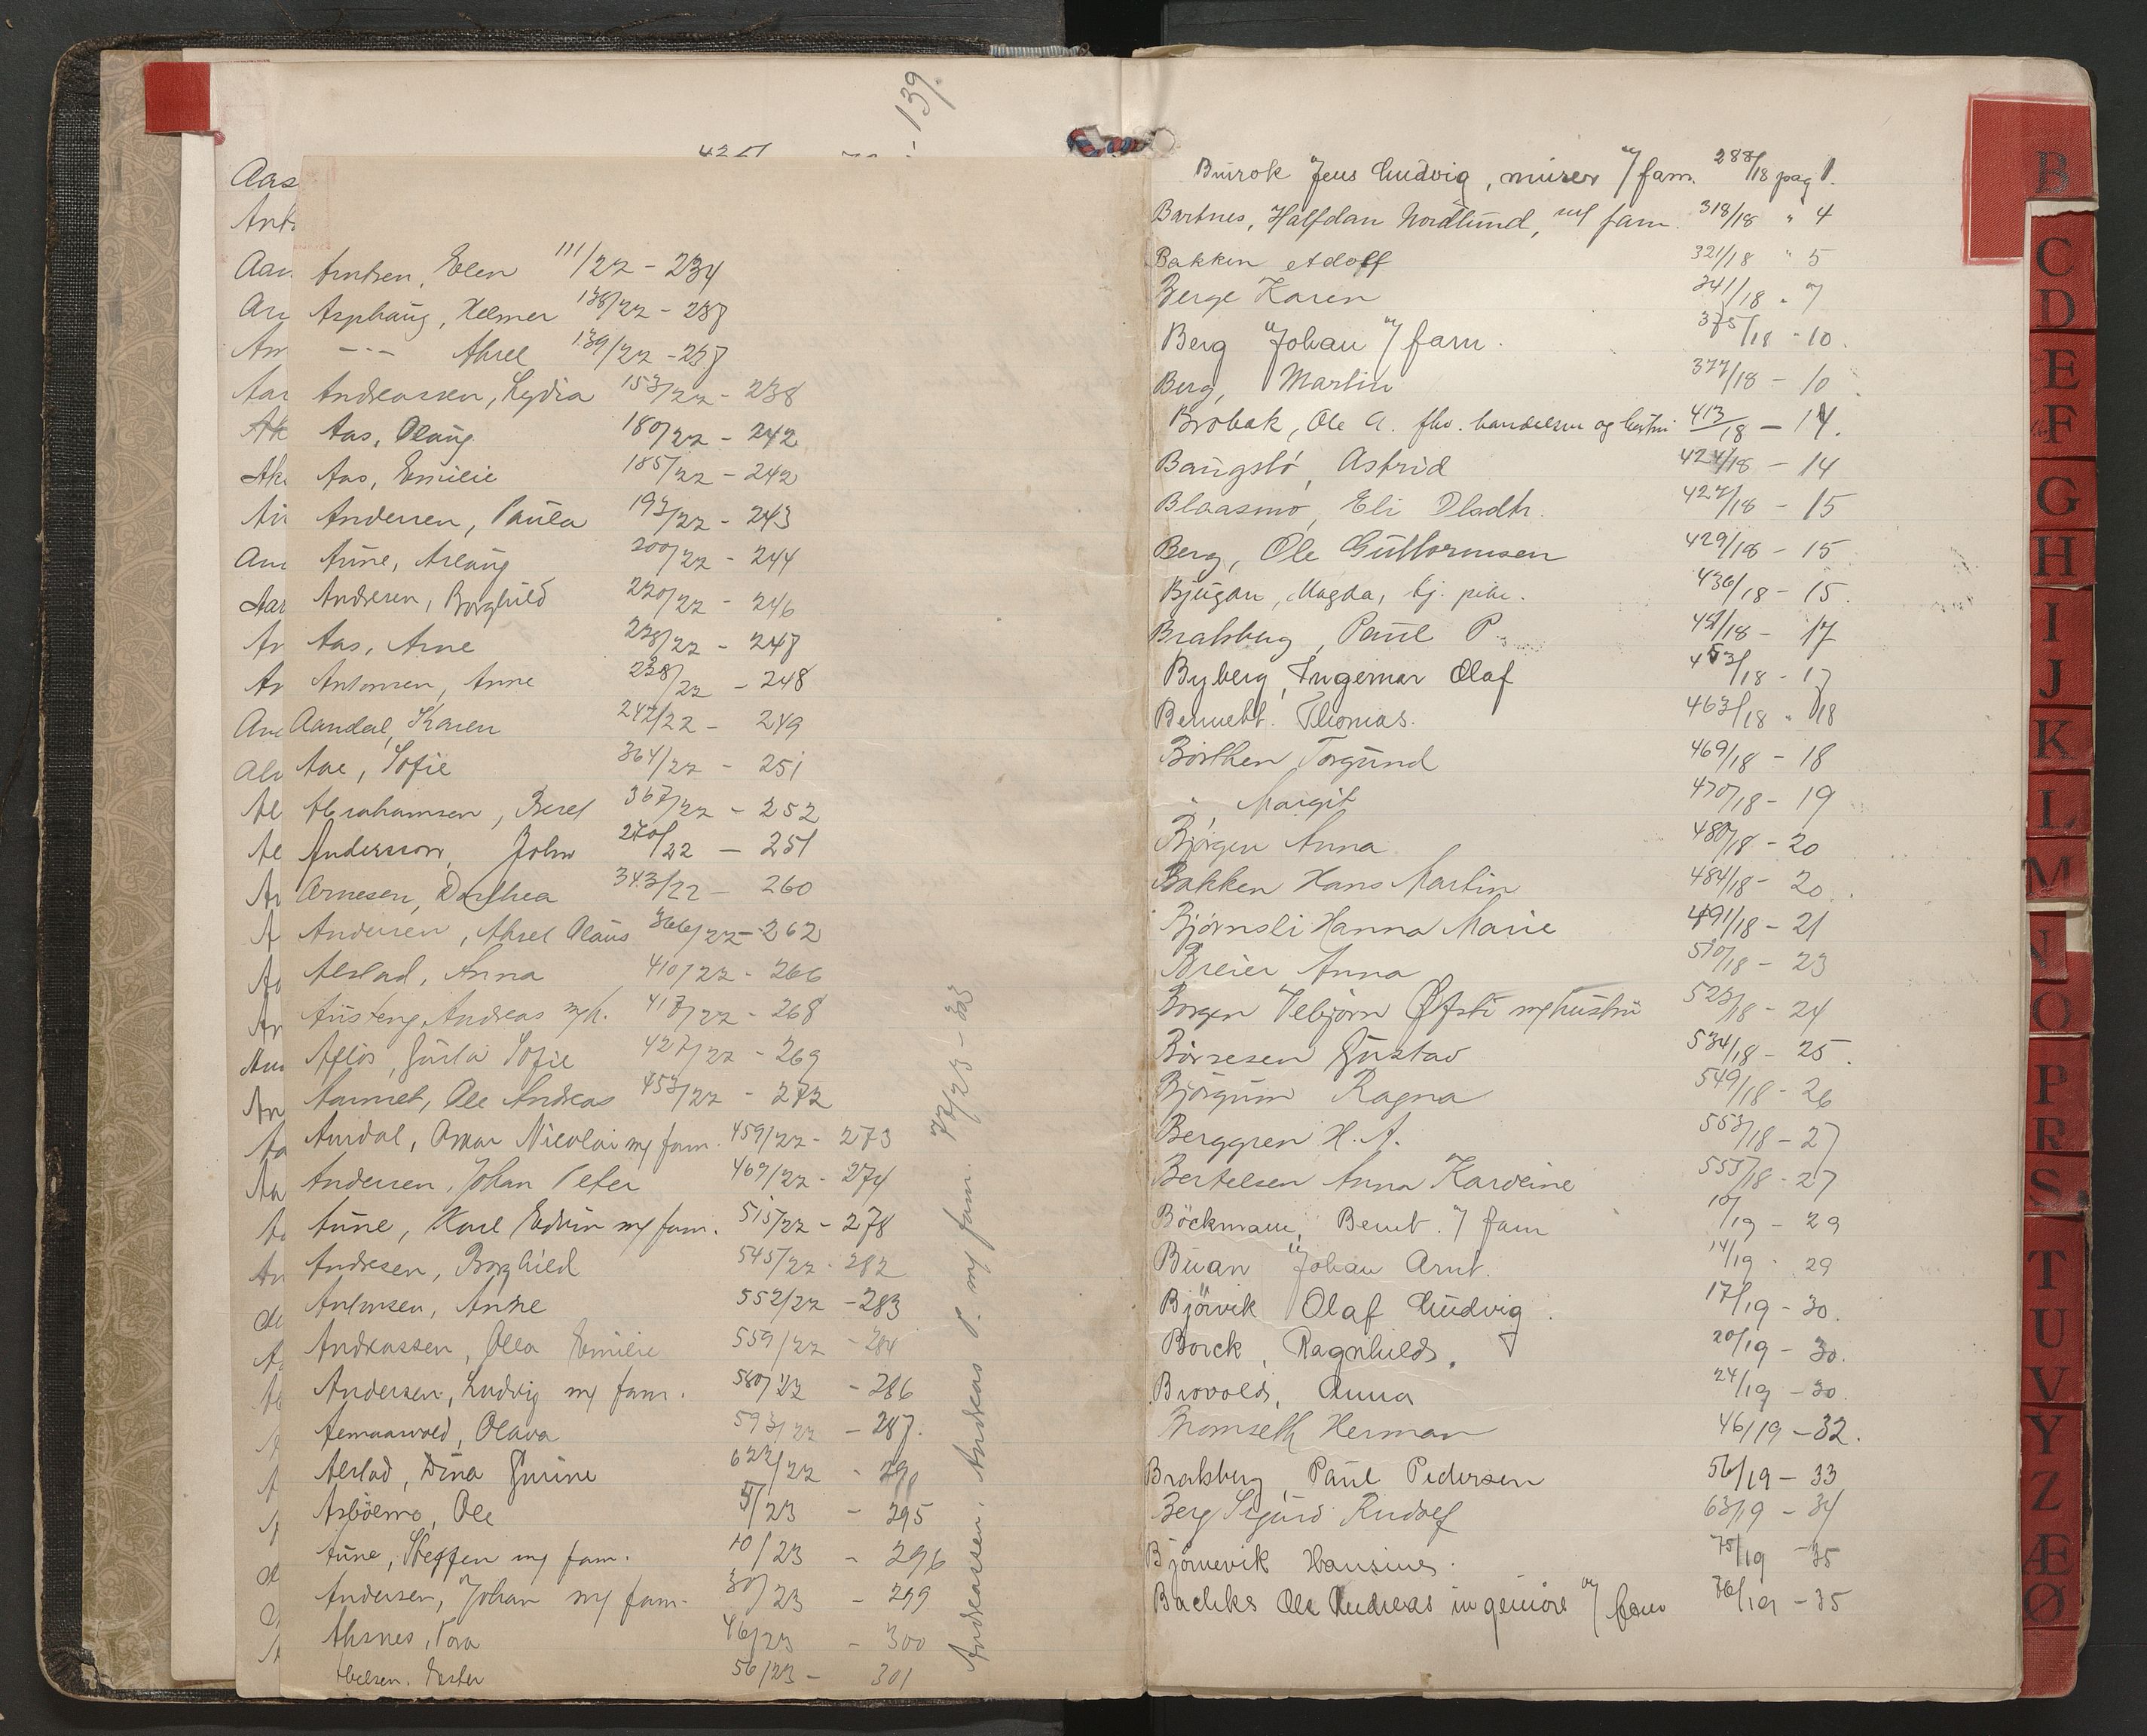 139.
Aas
Arntsen, Elen 111/22 - 234
Asphaug, Helmer 138/22 - 237
- - - Aksel 139/22 - 237
Andreassen, Lydia 153/22 - 238
Aas, Olaug 180/22 - 242
Aas, Emilie 185/22 - 242
Andersen, Paula 193/22 - 243
Aune, Aslaug 200/22 - 244
Andresen, Borghild 220/22 - 246
Aas, Arne 228/22 - 247
Antonsen, Anne 238/22 - 248
Aandal, Karen 242/22 - 249
Aae, Sofie 264/22 - 251
Abrahamsen, Berel 267/22 - 252
Andersson, John 270/22 - 251
Arnesen, Dorthea 343/22 - 260
Andersen, Aksel Olaus 366/22 - 262
Alstad, Anna 410/22 - 266
Austeng, Andreas m/h. 417/22 - 268
Aflös, Gusta Sofie 427/22 - 269
Aunet, Ole Andreas 453/22 - 272
Aurdal, Omar Nicolai m/ fam. 459/22 - 273
Andersen, Johan Peter 469/22 - 274
Aune, Karl Edvin m/ fam. 515/22 - 278
Andresen, Borghild 545/22 - 282
Antonsen, Anne 552/22 - 283
Andreassen, Olea Emilie 559/22 - 284
Andersen, Ludvig m/ fam. 580/22 - 286
Olava 593/22 - 287.
Alstad, Dina Gurine 622/22 - 290
Ole 5/23 - 295
Aune, Steffen m/ fam. 10/23 - 296
Andersen, Johan m/ fam. 30/23 - 299
Nora 46/23 - 300
Ester 56/23 - 301
Andreassen, Andreas P. m/ fam. 72/23 - 303
Buirok Jens Ludvig, murer m/ fam. 288/18 pag 1.
Bartnes, Halfdan Nordlund, m/ fam. 318/18 " 4
Bakken Adolf 321/18 " 5
Berge Karen 341/18 " 7
Berg Johan m/ fam. 375/18 - 10.
Berg, Martin 377/18 - 10.
Brobak, Ole A. fhv. handelsm og hustru 413/18 - 14.
Baugslö, Astrid 424/18 - 14
Blaasmo, Eli Olsdtr. 427/18 - 15
Berg, Ole Guttormsen 429/18 - 15
Bjugan, Magda, tj. pike. 436/18 - 15.
Bratsberg, Paul P. 451/18 - 17
Byberg, Ingemar Olaf 453/18 - 17
Bennett. Thomas. 463/18 " 18
Börthen Torgund 469/18 - 18
" Margit 470/18 - 19
Björgen Anna 480/18 - 20
Bakken Hans Martin 484/18 - 20.
Bjørnsli Hanna Marie 491/18 - 21
Breier Anna 510/18 - 23
Borgen Vebjørn Øfsti m/hustru 523/18 - 24
Börsesen Gustav 534/18 - 25.
Björgum Ragna 549/18 - 26
Berggren H. A. 553/18 - 27
Bertelsen Anna Karoline 555/18 - 27
Böckmann, Bernt. m/ fam 10/19 - 29
Buan Johan Arnt. 14/19 - 29
Björvik Olaf Ludvig. 17/19 - 30.
Borck, Ragnhild. 20/19 - 30.
Brovold, Anna 24/19 - 30.
Bromseth Herman 46/19 - 32.
Bratsberg, Paul Pedersen 56/19 - 33
Berg Sigurd Rudolf 63/19 - 34
Björnevik Hansine. 75/19 - 35
Bachke Ole Andreas ingeniör m/ fam 76/19 - 35
B
C
D
E
F
G
H
I
J
K
L
M
N
O
P
R
S
T
U
V
Y
Z
Æ
Ø